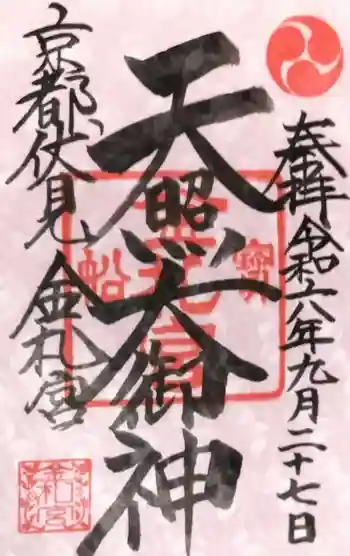 奉拝 令和六年九月二十七日
天照大御神
京都伏見 金札宮
金札宮
寳
船